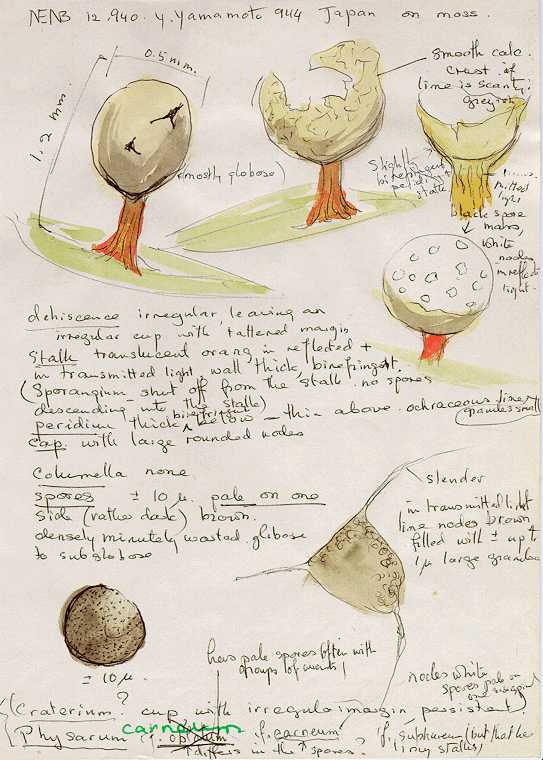 NENB 12.940. Y. Yamamoto 944 Japan on moss.
0.5 mm.
1.2 mm
(mostly globose)
smooth calc.
crest of
lime is scanty,
greyish
slightly
birefringent
stalk
black spore
mass,
white
nodes
in reflected
light.
dehiscence irregular, leaving an
irregular cup with tattered margin
stalk translucent orang in reflected +
in transmitted light, wall thick, birefringent.
(Sporangium shut off from the stalk no spores
descending into the stalk)
peridium thick, birefringent below – thin above. ochraceous lines
(granules small)
cap. with large rounded nodes
Columella none
spores ± 10 µ. pale on one
side (rather dark) brown.
densely minutely warted. globose
to subglobose
slender
in transmitted light
lime nodes brown
filled with ± up to
1 µ large granules
± 10 µ.
has pale spores often with
groups of warts
nodes white
spores pale
Craterium? cup with irregular margin persistent.
carneum
Physarum cf. f. carneum? cf. sulphureum (but that has
differs in the spores?
limy stalks)